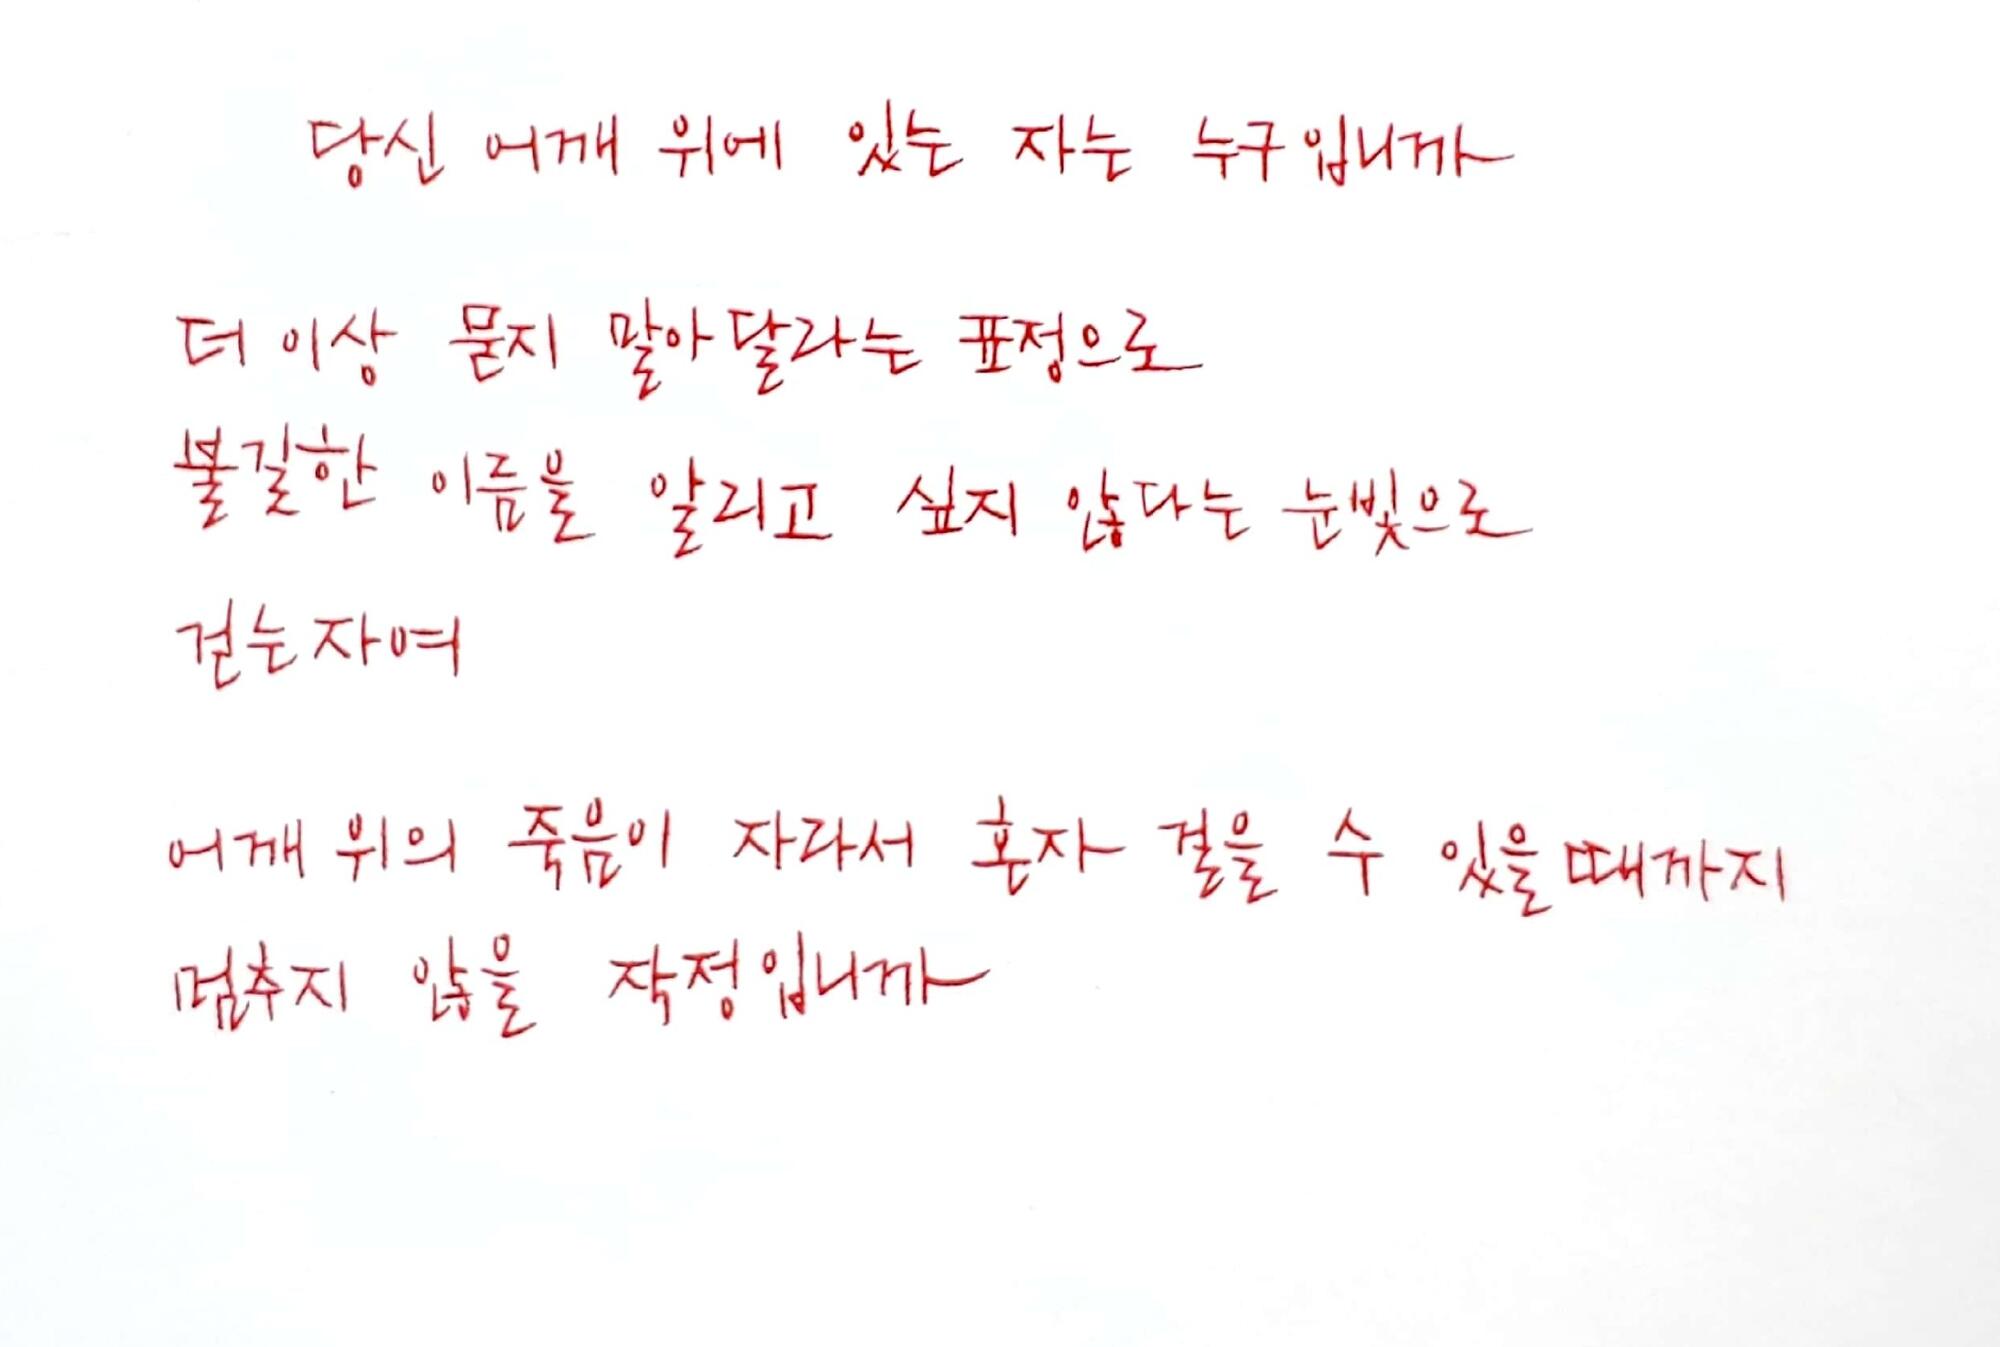 당신 어깨 위에 있는 자는 누구입니까
더 이상 묻지 말아달라는 표정으로
불길한 이름을 알리고 싶지 않다는 눈빛으로
걷는 자여
어깨 위의 죽음이 자라서 혼자 걸을 수 있을 때까지
멈추지 않을 작정입니까